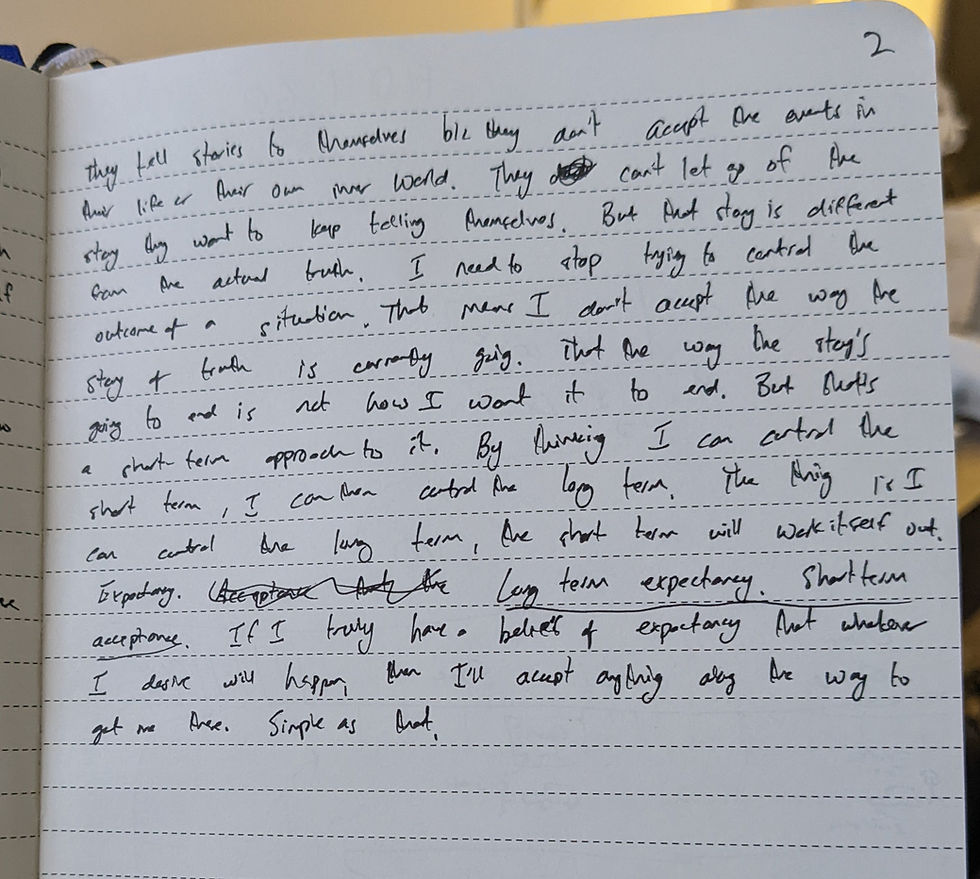 2
they tell stories to themselves b/c they don't accept the events in
their life or their own inner world. They can't let go of the
story they want to keep telling themselves. But that story is different
from the actual truth. I need to stop trying to control the
outcome of a situation. That means I don't accept the way the
story of truth is currently going. That the way the story's
going to end is not how I want it to end. But that's
a short term approach to it. By thinking I can control the
short term, I can then control the long term. The thing is I
can control the long term, the short term will work itself out.
Expectancy. Acceptance that the Long term expectancy. Short term
acceptance. If I truly have a belief of expectancy that whatever
I desire will happen, then I'll accept anything along the way to
get me there. Simple as that.